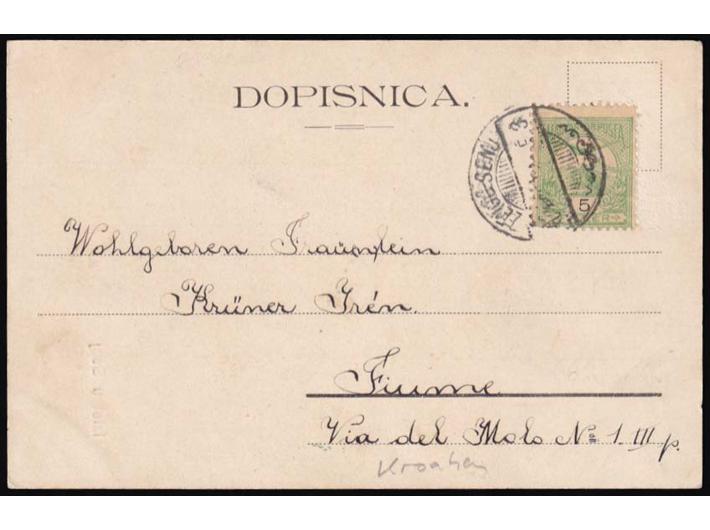 DOPISNICA.
ZENGG-SENJ
5
Wohlgeboren Fraeulein
Krüner Irén.
Fiume
Via del Molo No 1. III p.
Kroatien